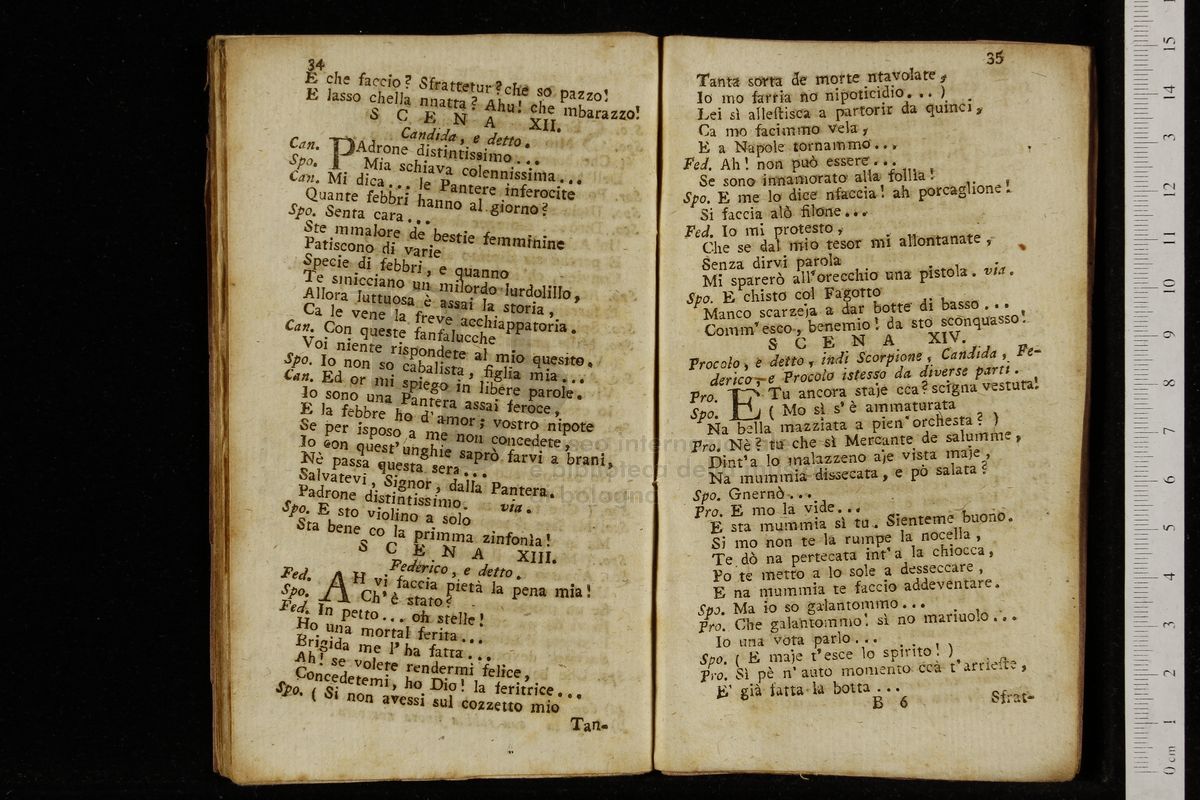 34
E che faccio? Sfrattetur? che so pazzo!
E lasso chella nnatta? Ahu! che mbarazzo!
SCENA XII.
Candida, e detto.
Can. PAdrone distintissimo...
Spo. Mia schiava colennissima...
Can. Mi dica... le Pantere inferocite
Quante febbri hanno al giorno?
Spo. Senta cara...
Ste mmalore de bestie femminine
Patiscono di varie
Specie di febbri, e quanno
Te smicciano un milordo lurdolillo,
Allora luttuosa è assai la storia,
Ca le vene la freve acchiappatoria.
Can. Con queste fanfalucche
Voi niente rispondete al mio quesito.
Spo. Io non so cabalista, figlia mia...
Can. Ed or mi spiego in libere parole.
Io sono una Pantera assai feroce,
E la febbre ho d'amor; vostro nipote
Se per isposo a me non concedete,
Io con quest'unghie saprò farvi a brani,
Nè passa questa sera...
Salvatevi, Signor, dalla Pantera.
Padrone distintissimo. via.
Spo. E sto violino a solo
Sta bene co la primma zinfonìa!
SCENA XIII.
Federico, e detto.
Fed. AH vi faccia pietà la pena mia!
Spo. Ch'è stato?
Fed. In petto... oh stelle!
Ho una mortal ferita...
Brigida me l'ha fatta...
Ah! se volete rendermi felice,
Concedetemi, ho Dio! la feritrice...
Spo. ( Si non avessi sul cozzetto mio
Tan-
35
Tanta sorta de morte ntavolate,
Io mo farria no nipoticidio... )
Lei sì allestisca a partorir da quinci,
Ca mo facimmo vela,
E a Napole tornammo...
Fed. Ah! non può essere...
Se sono innamorato alla follìa!
Spo. E me lo dice nfaccia! ah porcaglione!
Si faccia alò filone...
Fed. Io mi protesto,
Che se dal mio tesor mi allontanate,
Senza dirvi parola
Mi sparerò all'orecchio una pistola. via.
Spo. E chisto col Fagotto
Manco scarzeja a dar botte di basso...
Comm'esco, benemio! da sto sconquasso!
SCENA XIV.
Procolo, e detto, indi Scorpione, Candida, Fe-
derico, e Procolo istesso da diverse parti.
Pro. E Tu ancora staje cca? scigna vestuta!
Spo. ( Mo sì s'è ammaturata
Na bella mazziata a pien'orchesta? )
Pro. Nè? tu che sì Mercante de salumme,
Dint'a lo malazzeno aje vista maje,
Na mummia dissecata, e pò salata?
Spo. Gnernò...
Pro. E mo la vide...
E sta mummia sì tu. Sienteme buono.
Si mo non te la rumpe la nocella,
Te dò na pertecata int'a la chiocca,
Po te metto a lo sole a desseccare,
E na mummia te faccio addeventare.
Spo. Ma io so galantommo...
Pro. Che galantommo! sì no mariuolo...
Io una vota parlo...
Spo. ( E maje t'esce lo spirito! )
Pro. Sì pè n'auto momento cca t'arrieste,
E' già fatta la botta...
B 6
Sfrat-